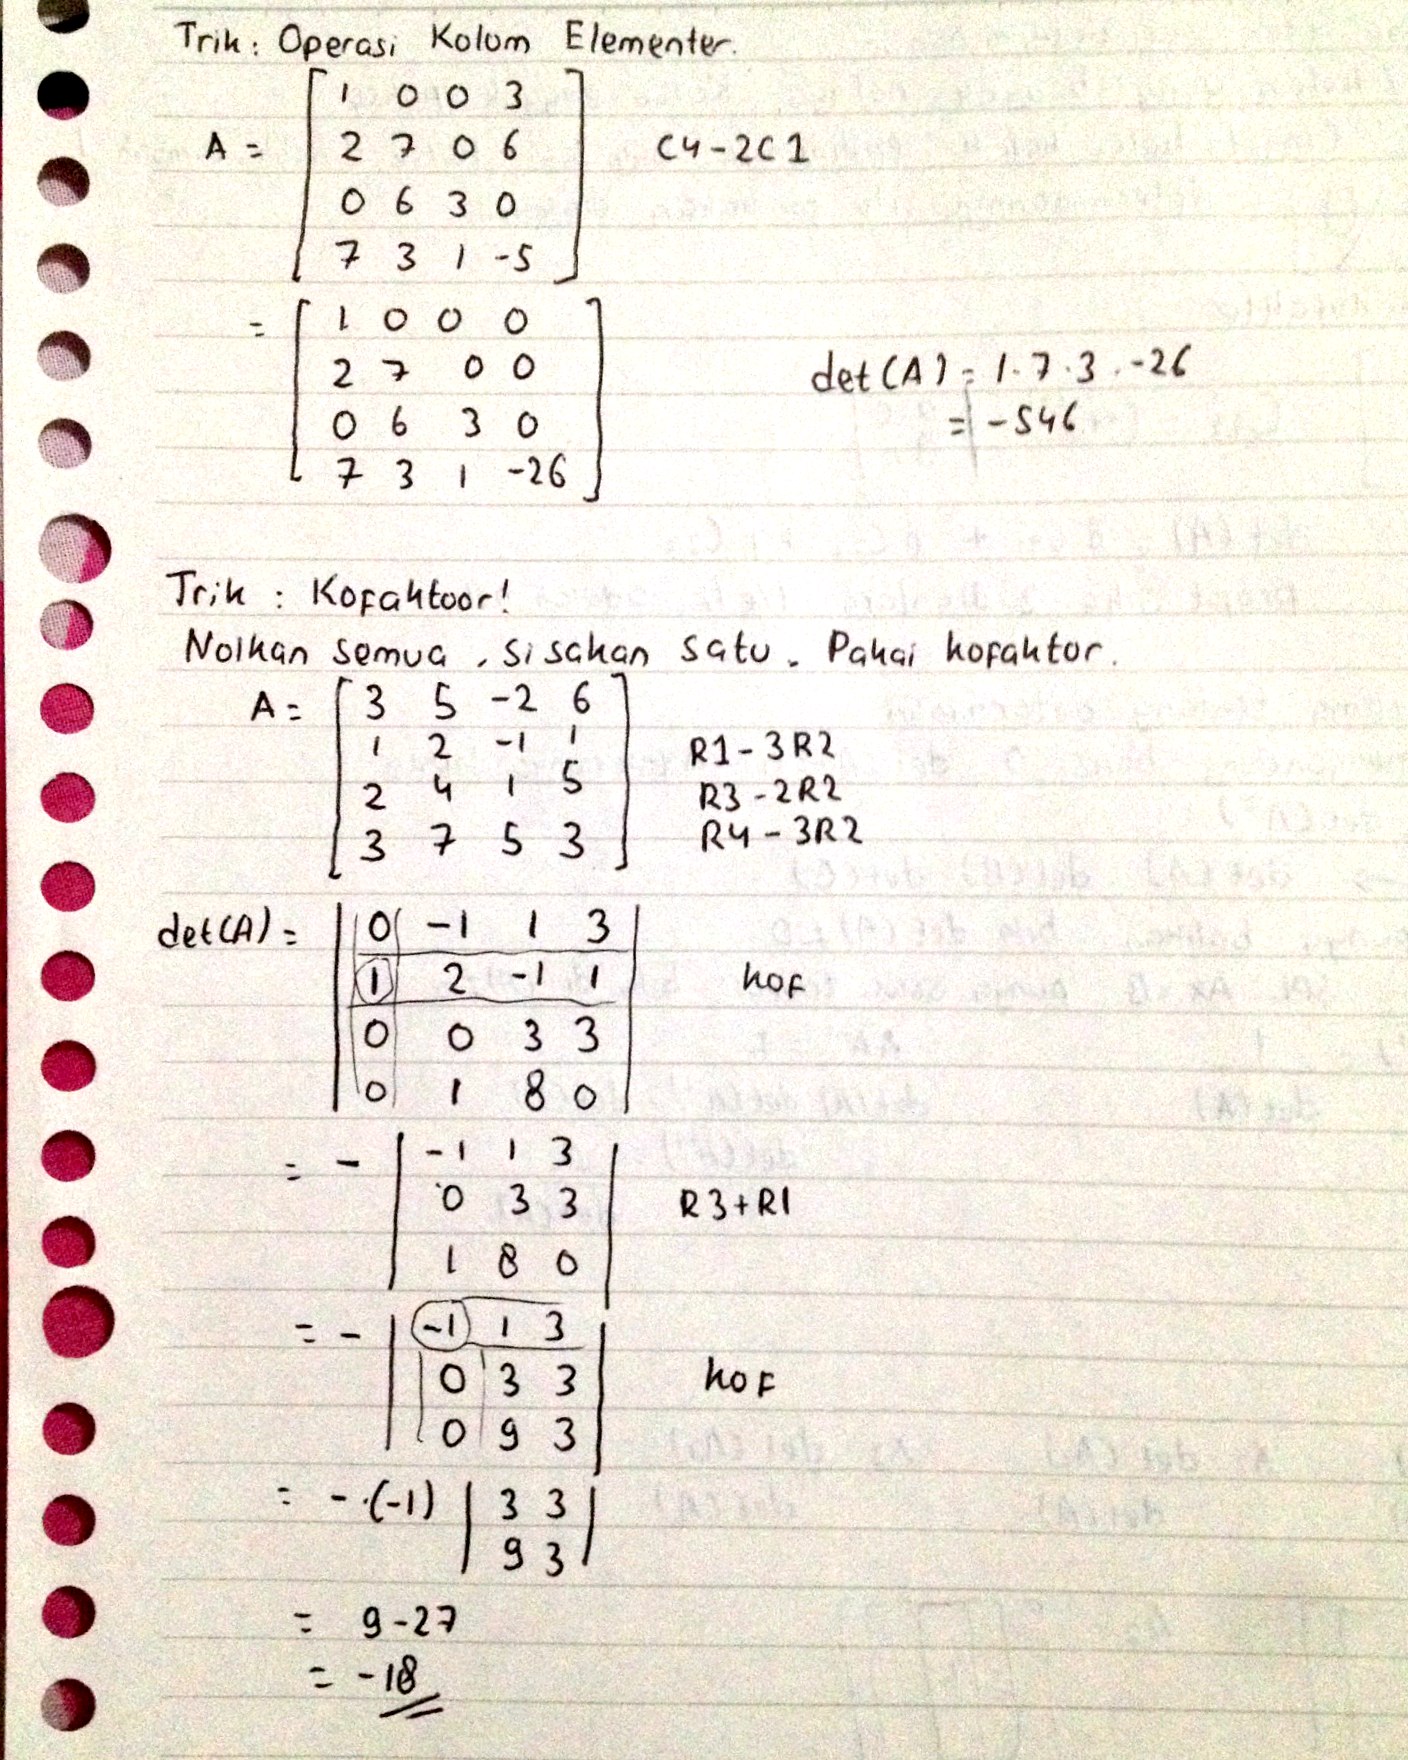 Trik: Operasi Kolom Elementer.
A = [ 1 0 0 3
2 7 0 6
0 6 3 0
7 3 1 -5 ] C4-2C1
= [ 1 0 0 0
2 7 0 0
0 6 3 0
7 3 1 -26 ]
det(A) = 1.7.3.-26
= -546
Trik : Kofaktoor!
Nolkan semua, sisakan satu. Pakai kofaktor.
A = [ 3 5 -2 6
1 2 -1 1
2 4 1 5
3 7 5 3 ]
R1-3R2
R3-2R2
R4-3R2
det(A) = | 0 -1 1 3
1 2 -1 1
0 0 3 3
0 1 8 0 | kof
= - | -1 1 3
0 3 3
1 8 0 | R3+R1
= - | -1 1 3
0 3 3
0 9 3 | kof
= - .(-1) | 3 3
9 3 |
= 9-27
= -18